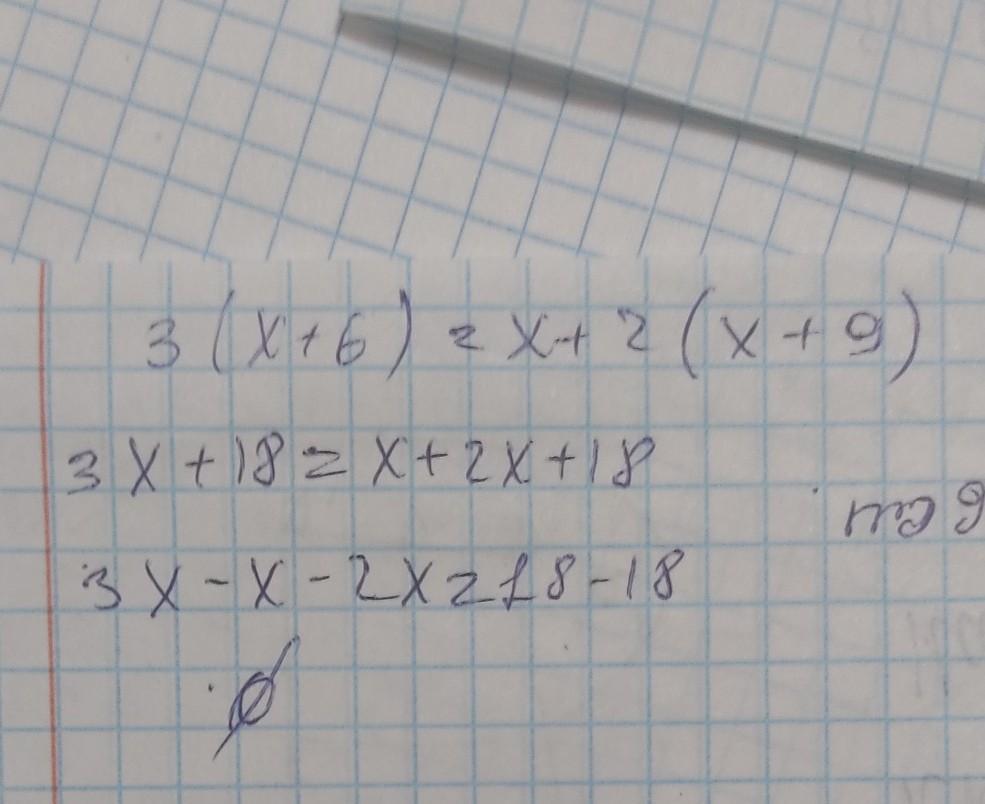 3(x+6)=x+2(x+9)
3x+18=x+2x+18
3x-x-2x=18-18
∅